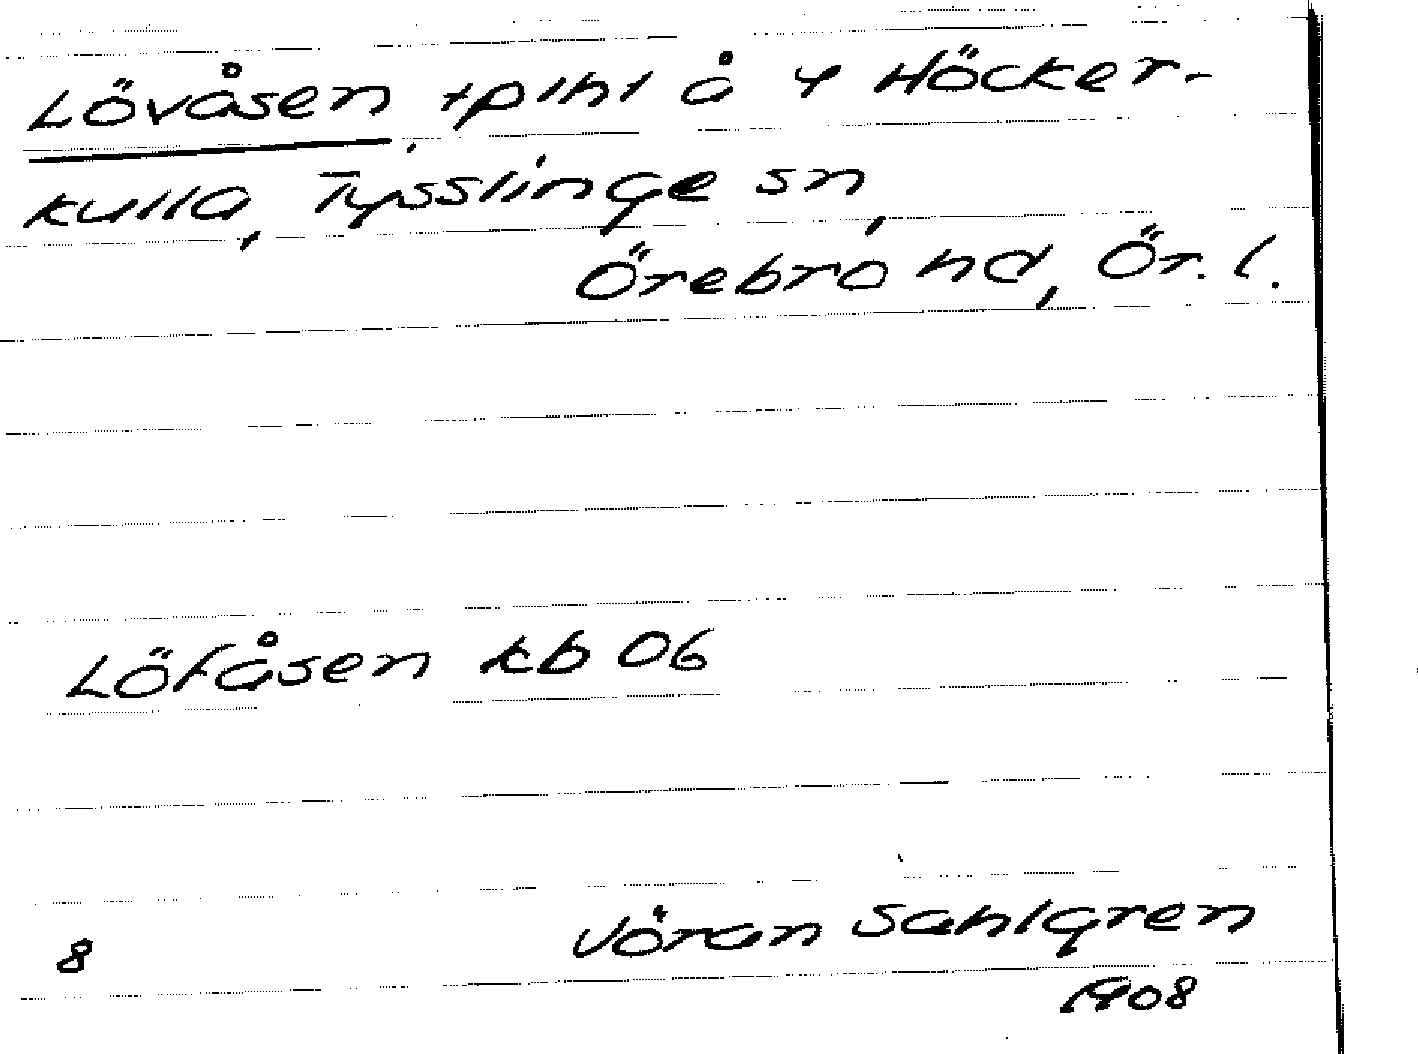 Lövåsen tplht å 4 Höcker-
kulla, Tysslinge sn,
Örebro hd, Ör. l.
Löfåsen kb 06
8 Jöran Sahlgren
1908